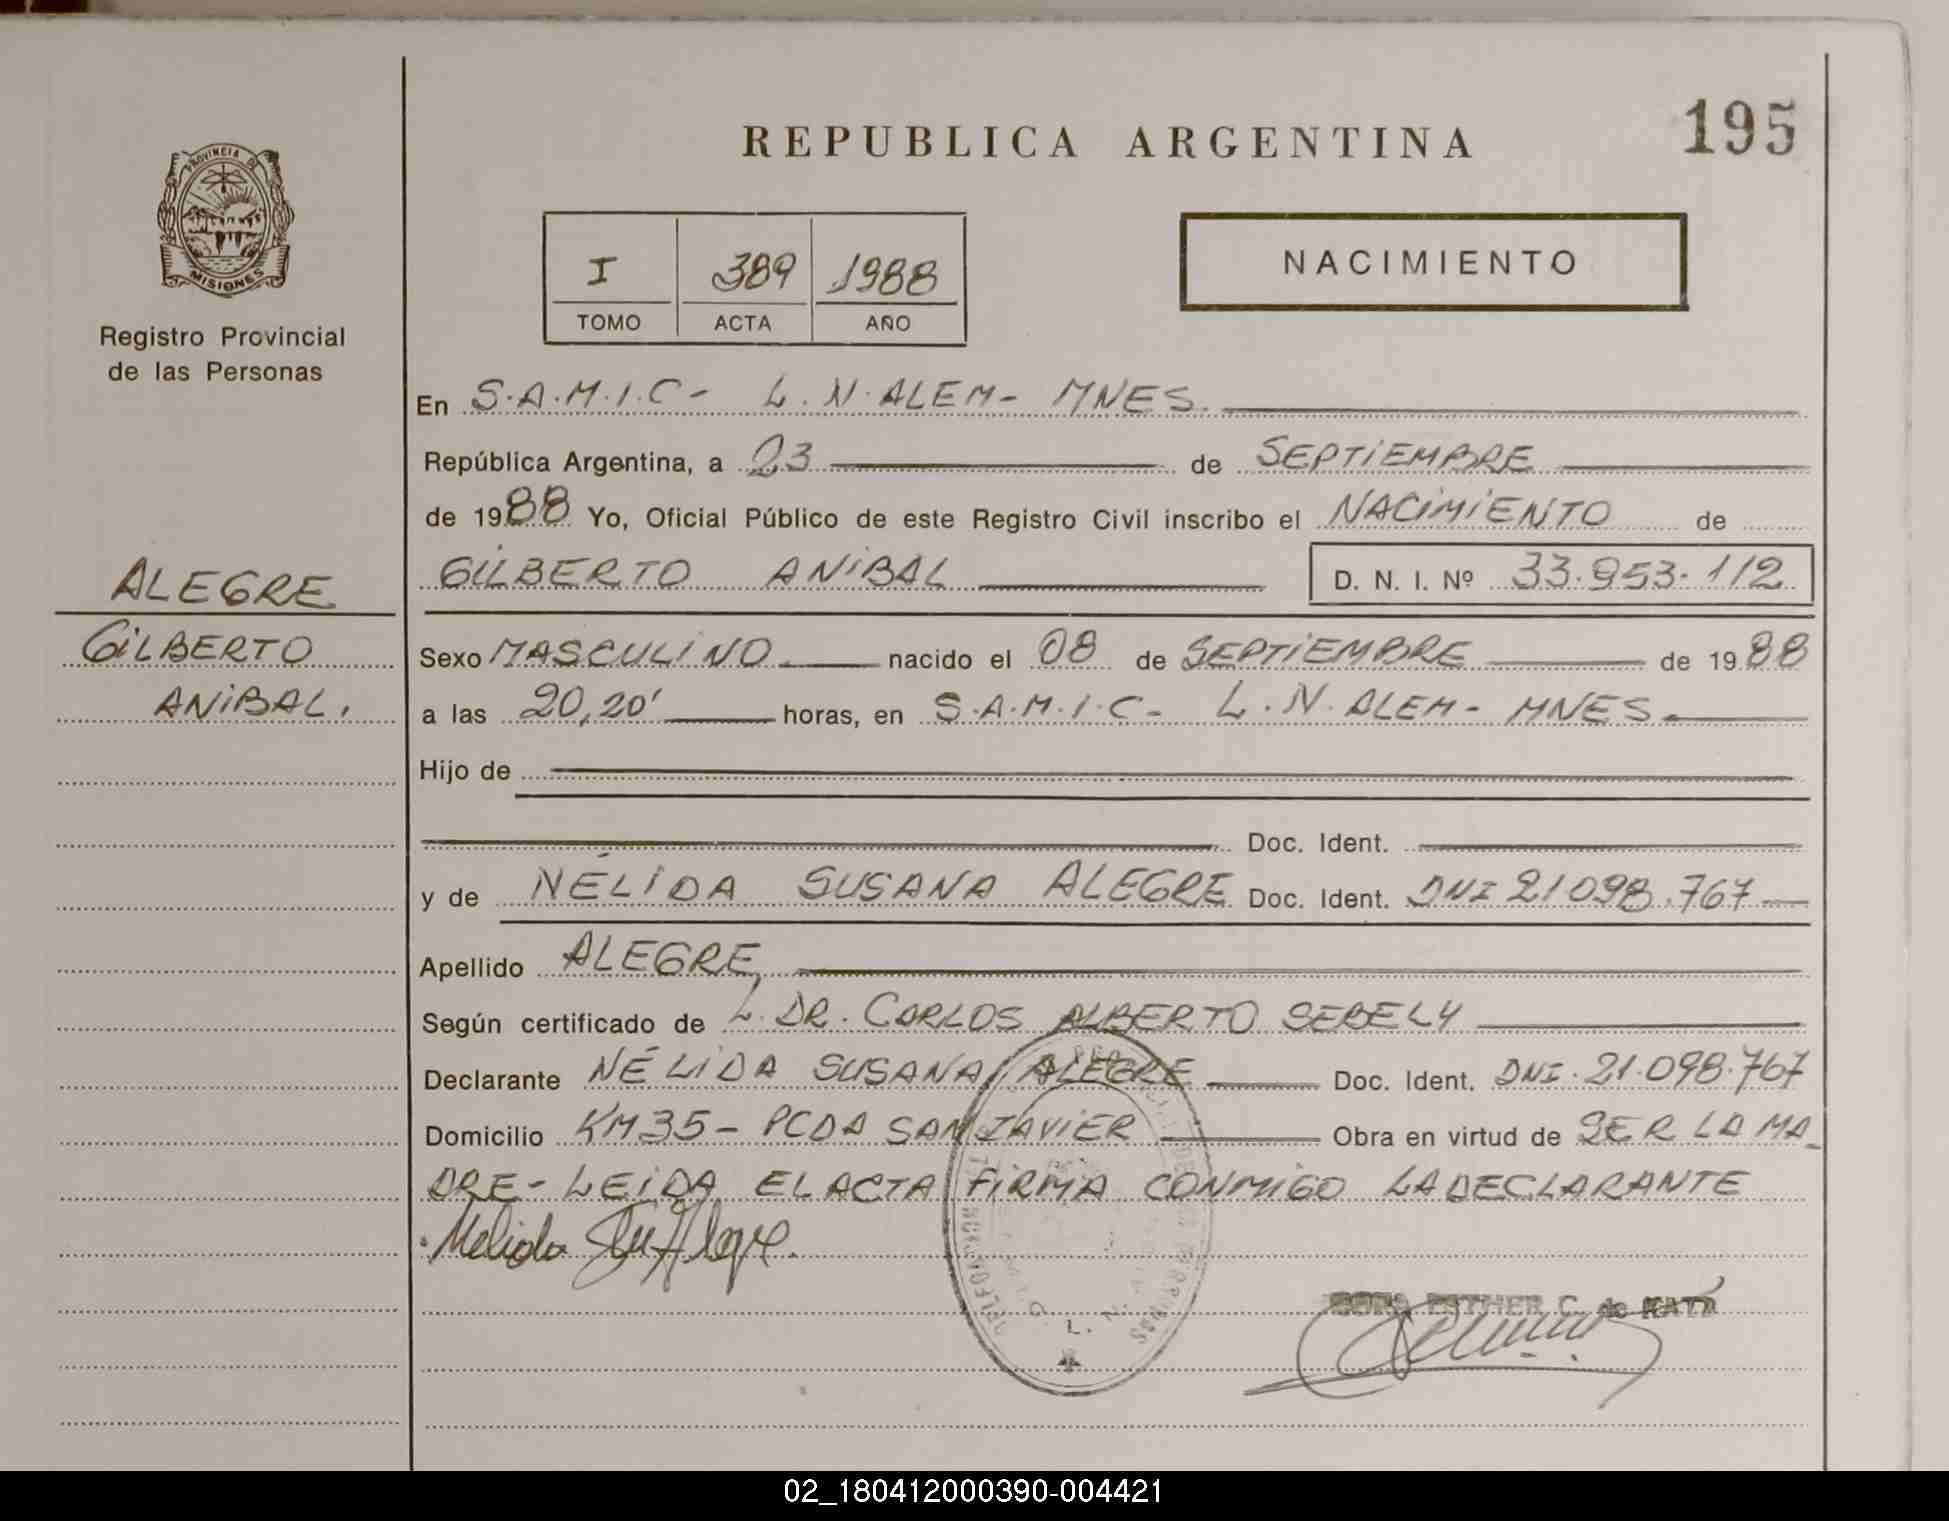 195
REPUBLICA ARGENTINA
PROVINCIA DE
MISIONES
Registro Provincial
de las Personas
I 389 1988
TOMO ACTA AÑO
NACIMIENTO
En S.A.M.I.C- L.N.ALEM- MNES.
República Argentina, a 23 de SEPTIEMBRE
de 1988 Yo, Oficial Público de este Registro Civil inscribo el NACIMIENTO de
GILBERTO ANIBAL D. N. I. Nº 33.953.112
ALEGRE
GILBERTO
ANIBAL.
Sexo MASCULINO nacido el 08 de SEPTIEMBRE de 1988
a las 20,20' horas, en S.A.M.I.C- L.N. ALEM- MNES.
Hijo de
Doc. Ident.
y de NÉLIDA SUSANA ALEGRE Doc. Ident. DNI 21098.767
Apellido ALEGRE
Según certificado de L. DR. CARLOS ALBERTO SEBELY
Declarante NÉLIDA SUSANA ALEGRE Doc. Ident. DNI. 21.098.767
Domicilio KM35- PCDA SAN JAVIER Obra en virtud de SER LA MA-
DRE- LEIDA EL ACTA FIRMA CONMIGO LA DECLARANTE
ESTHER C. de
L. N.
02_180412000390-004421